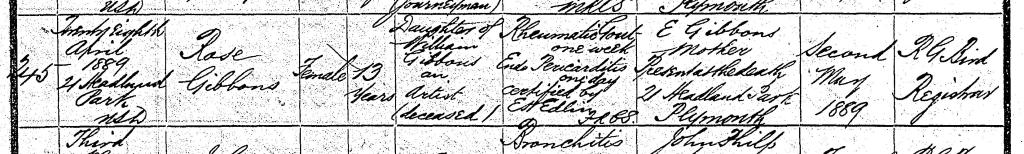 USD
(Journeyman)
MRCS
Plymouth
245
Twenty Eighth
April
1889
21 Headland
Park
USD
Rose
Gibbons
Female
13
Years
Daughter of
William
Gibbons
an
Artist
(deceased)
Rheumatic Gout
one week
Endo Pericarditis
one day
Certified by
E H Edlin
FRCS
E Gibbons
Mother
Present at the death
21 Headland Park
Plymouth
Second
May
1889
R G Bird
Registrar
Third
Bronchitis
John Philp